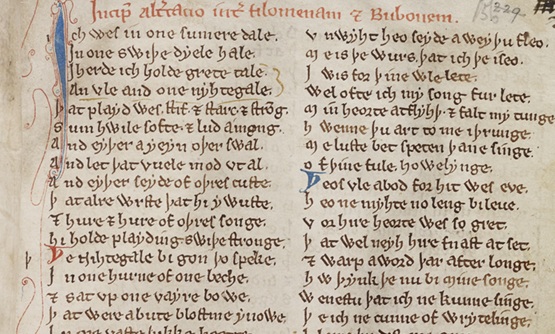 Incip̃ Alt̃cacio int̃ filomenam & Bubonem.
Ich wes in one sumere dale.
In one swiþe dyele hale.
Iherde ich holde grete tale.
An vle and one nyhtegale.
Þat playd wes stif & starc & strõg.
Sum hwile softe & lud among.
And eyþer ayeyn oþer swal.
And let þat vuele mod vt al.
And eyþer seyde of oþres custe.
Þat alre wrste þat hi ywuste.
& hure & hure of oþres songe.
hi holde playding swiþe stronge.
Þe nihtegale bi gon þo speke.
In one hurne of one beche.
& sat vp one vayre bowe.
Þat were abute blostme ynowe.
Vnwyht heo seyde awey þu fleo.
Me is þe wurs þat ich þe iseo.
I wis for þine wle lete.
Wel ofte ich my song fur lete.
Min heorte atflyhþ & falt my tunge
hwenne þu art to me iþrunge.
Me luste bet speten þane singe.
Of þine fule howelynge.
Þeos vle abod for hit wes eve.
heo ne myhte no leng bileue.
Vor hire heorte wes so gret.
Þat wel neyh hire fnast at set.
& warp a word þar after longe.
hw þynk þe nu bi mine songe.
Wenestu þat ich ne kunne singe.
Þe ich ne cunne of wrytelinge.